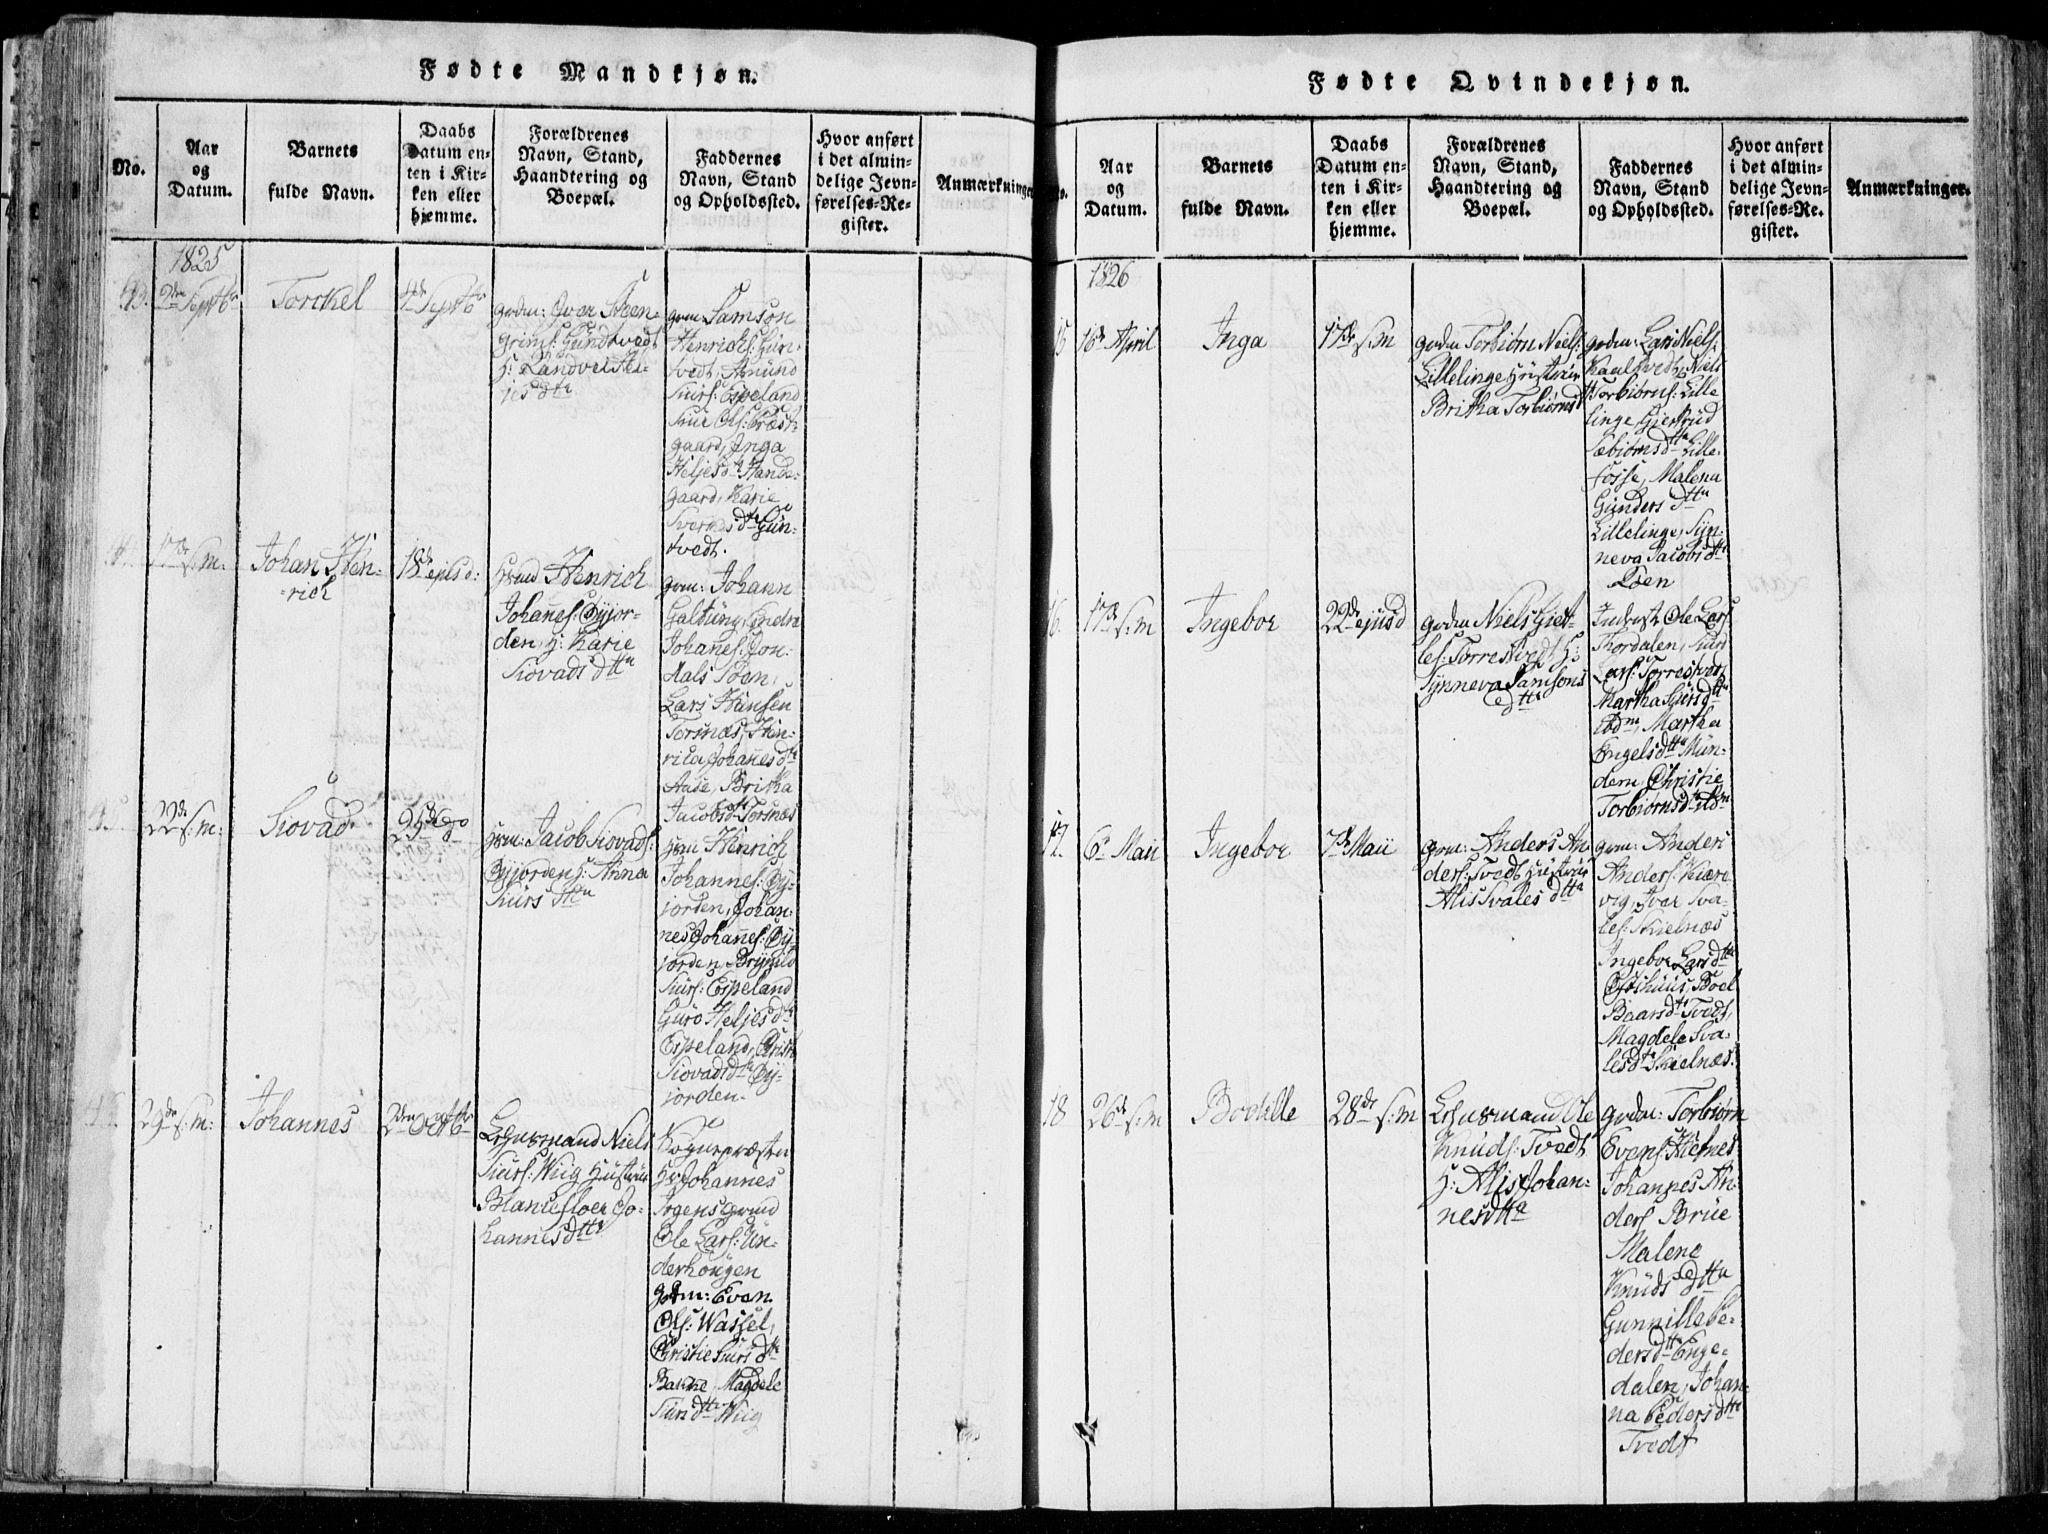 Fødte Mandkjøn.
No.
Aar
og
Datum.
Barnets
fulde Navn.
Daabs
Datum en-
ten i Kir-
ken eller
hjemme.
Forældrenes
Navn, Stand,
Haandtering og
Boepæl.
Faddernes
Navn, Stand
og Opholdssted.
Hvor anført
i det almin-
delige Jevn-
førelses-Re-
gister.
Anmærkninger
1825
43.
2den Septbr
Torckel
4de Septbr
gdm: Iver Steen-
grims: Gundtvedt
H: Randvei Hel-
jesdtr
gdm: Samson
Henrichs: Gun-
tvedt, Amund
Siurs: Espeland
Siur Ols: Præst-
gaard, Inga
Heljesdr Hande-
gaard, Karie
Sversdtr Gun-
tvedt.
17de s:m.
Johan Hen-
-rich
18de ejusd:
Hsmd Henrich
Johanes: Byjor-
den, H: Karie
Siovads dttr
gdm: Johann
Galtung, Endre
Johanes: Jon-
dals Øen,
Lars Hansen
Torsnæs, Hen-
rica Johanesdtr
Aade, Britha
Jacobsdtr Torsnæs
22de s:m:
Siovad
25de do
Hsm: Jacob Siovads:
Byjorden H: Anna
Siurs dttr
Hsm Henrich
Johannes: By-
jorden, Johan-
nes Johanes: By-
jorden, Brynild
Siurs: Espeland
Guro Heljesdtr
Espeland, Brith
Siovadsdtr By-
jorden.
29de s:m:
Johannes
2den Octbr
Lehnsmand Niels
Siurs: Wiig Hustrue
Blansesloer Jo-
hannesdttr
Sognepræsten
Hr Johannes
Irgens gmd
Ole Lars: Un-
derhougen
gdm: Even
Ols: Wassel,
Christie Siursdtr
Bakke, Magdele
Siursdtr Wiig
Fødte Qvindekjøn.
No.
Aar
og
Datum.
Barnets
fulde Navn.
Daabs
Datum en-
ten i Kir-
ken eller
hjemme.
Forældrenes
Navn, Stand,
Haandtering og
Boepæl.
Faddernes
Navn, Stand
og Opholdssted.
Hvor anført
i det almin-
delige Jevn-
førelses-Re-
gister.
Anmærkninger.
1826
15
16de April
Inga
17de s:m
gdm Torbiørn Niels:
Lillelinge Hustrue
Britha Torbiørnsd
gdm: Lars Niels:
Kaaltvedt, Niels
Torbiørns: Lille
linge, Giertrud
Sæbiørnsdtr Lille-
fosse, Malena
Gunders dttr
Lillelinge, Syn-
neva Jacobsdtr
Øen
16.
17de s:m
Ingebor
22de ejusd
gdm Niels Giet-
les: Torresvedt H:
Synneva Samsons
dttr
Inderste Ole Lars
Thordalen, Siur
Lars: Torresvedt,
Martha Siursdtr
ibdm, Martha
Engelsdtr Mun-
dem, Christie
Torbiørnsdtr ibdm
17.
6te Maii
Ingebor
7de Maii
gdm: Anders An-
ders: Tvedt Hustrue
Alis Svales dttr
gdm: Anders
Anders: Kiære
vig, Iver Sva-
les: Skielnæs
Ingebor Larsdtr
Ostehuus, Boel
Baarsdtr Tvedt,
Magdele Sva-
lesdtr Skielnæs.
18
26de s:m
Bodille
28de s:m
Lehnsmand Ole
Knuds: Tvedt
H: Alis Johan-
nesdtta
gdm: Torbiørn
Evens: Hielnes
Johannes An-
ders Brue
Malene
Knuds dttr
Gunnille Pe-
dersdtr Enge-
dalen, Johan-
na Pedersdtr
Tvedt